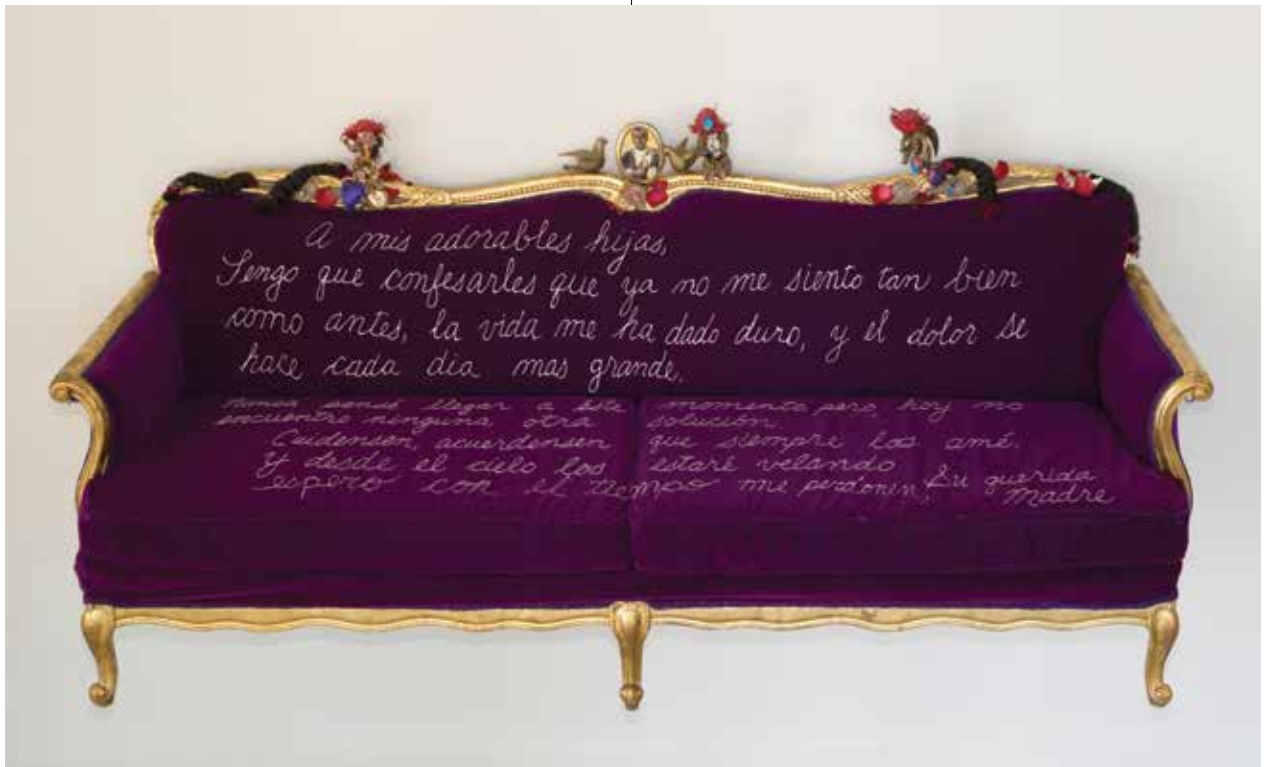 A mis adorables hijas,
Tengo que confesarles que ya no me siento tan bien
como antes, la vida me ha dado duro, y el dolor se
hace cada dia mas grande.
llegar a este momento pero hoy no
encuentro ninguna otra solución.
Cuidensen, acuerdensen que siempre los amé.
Y desde el cielo los estaré velando
espero con el tiempo me perdonen, Su querida
Madre